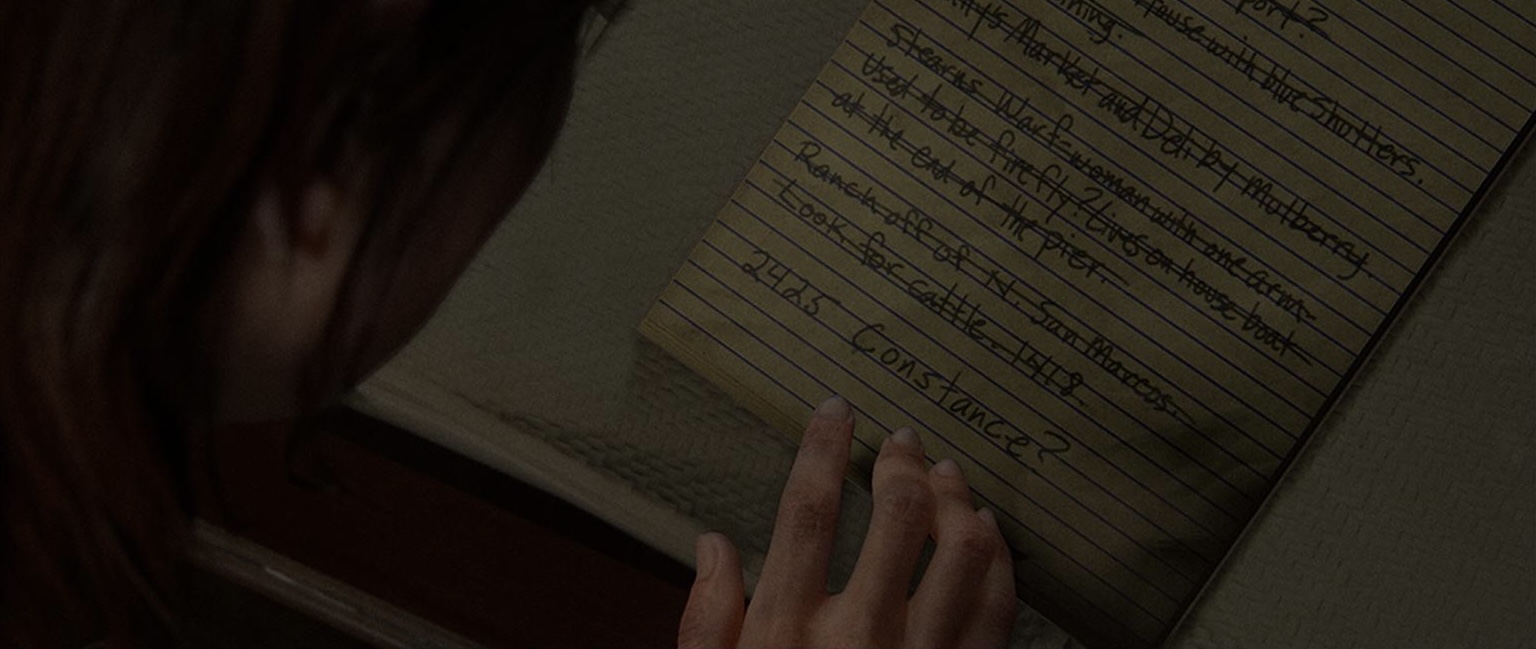 port?
House with blue shutters.
Market and Deli by Mulberry.
Stearns Warf-woman with one arm.
Used to be firefly? Lives on house boat
at the end of the pier.
Ranch off of N. San Marcos.
Look for cattle.
2425 Constance?